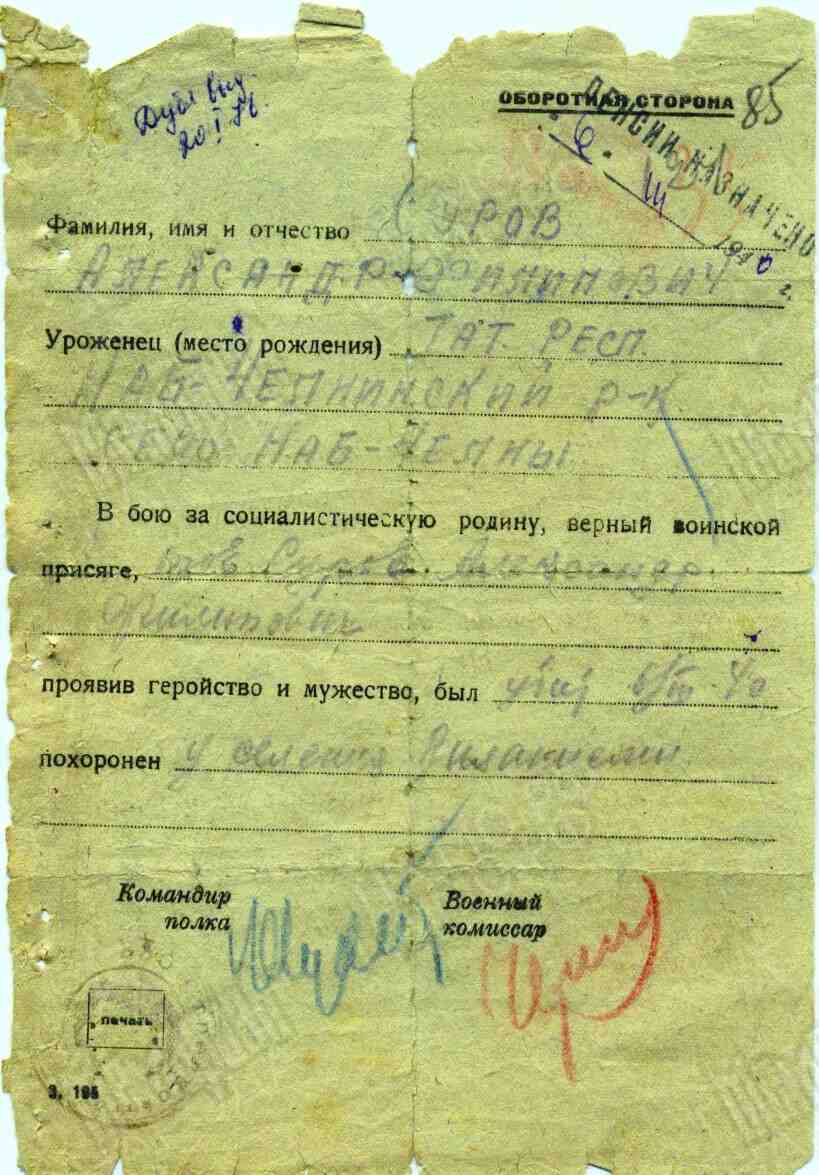 20 I
ОБОРОТНАЯ СТОРОНА 85
ПЕНСИИ НАЗНАЧЕНО
6 III 1940 г.
Фамилия, имя и отчество СУРОВ
АЛЕКСАНДР ФИЛИПОВИЧ
Уроженец (место рождения) ТАТ. РЕСП
НАБ-ЧЕЛНИНСКИЙ Р-К
СЕЛО НАБ-ЧЕЛНЫ
В бою за социалистическую родину, верный воинской
присяге, тов Суров Александр
Филипович
проявив геройство и мужество, был убит 6/III-40
похоронен у селения
Командир
полка
Военный
комиссар
печать
З. 195